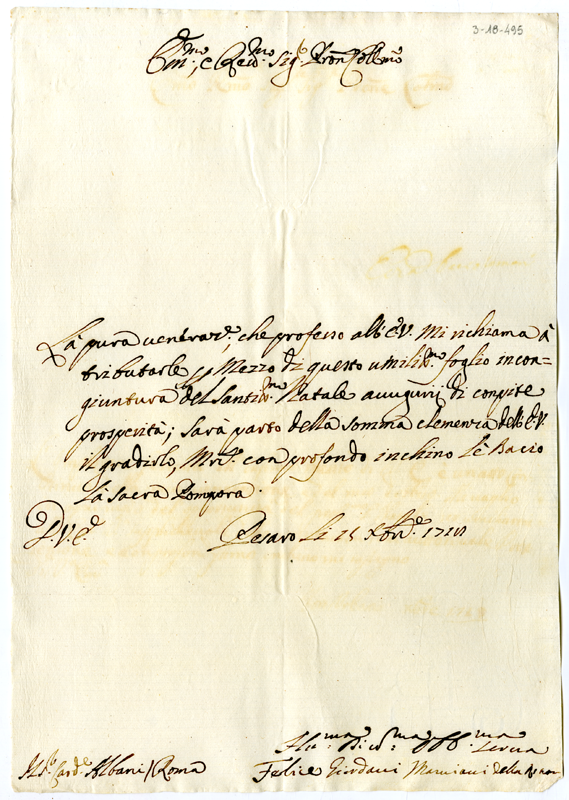 3-18-495
Em:mo, e Reu:mo Sig:r Pron Coll:mo
La pura uenéraz:e, che professo all'E.V. mi richiama à
tributarle p Mezzo di questo umiliss:mo foglio incon=
giuntura del Santiss:mo Natale auugurij di conpite
prosperità; sarà parto della somma clemenza dell'E.V.
il gradirlo, con profondo inchino Le Bacio
La sacra Porpora.
D. V. E.
Pesaro Li 15 Xbr:e
Hu:ma Di:ma Obb:ma Serua
Felice Giordani Mamiani della
Sig:r Card:le Albani / Roma